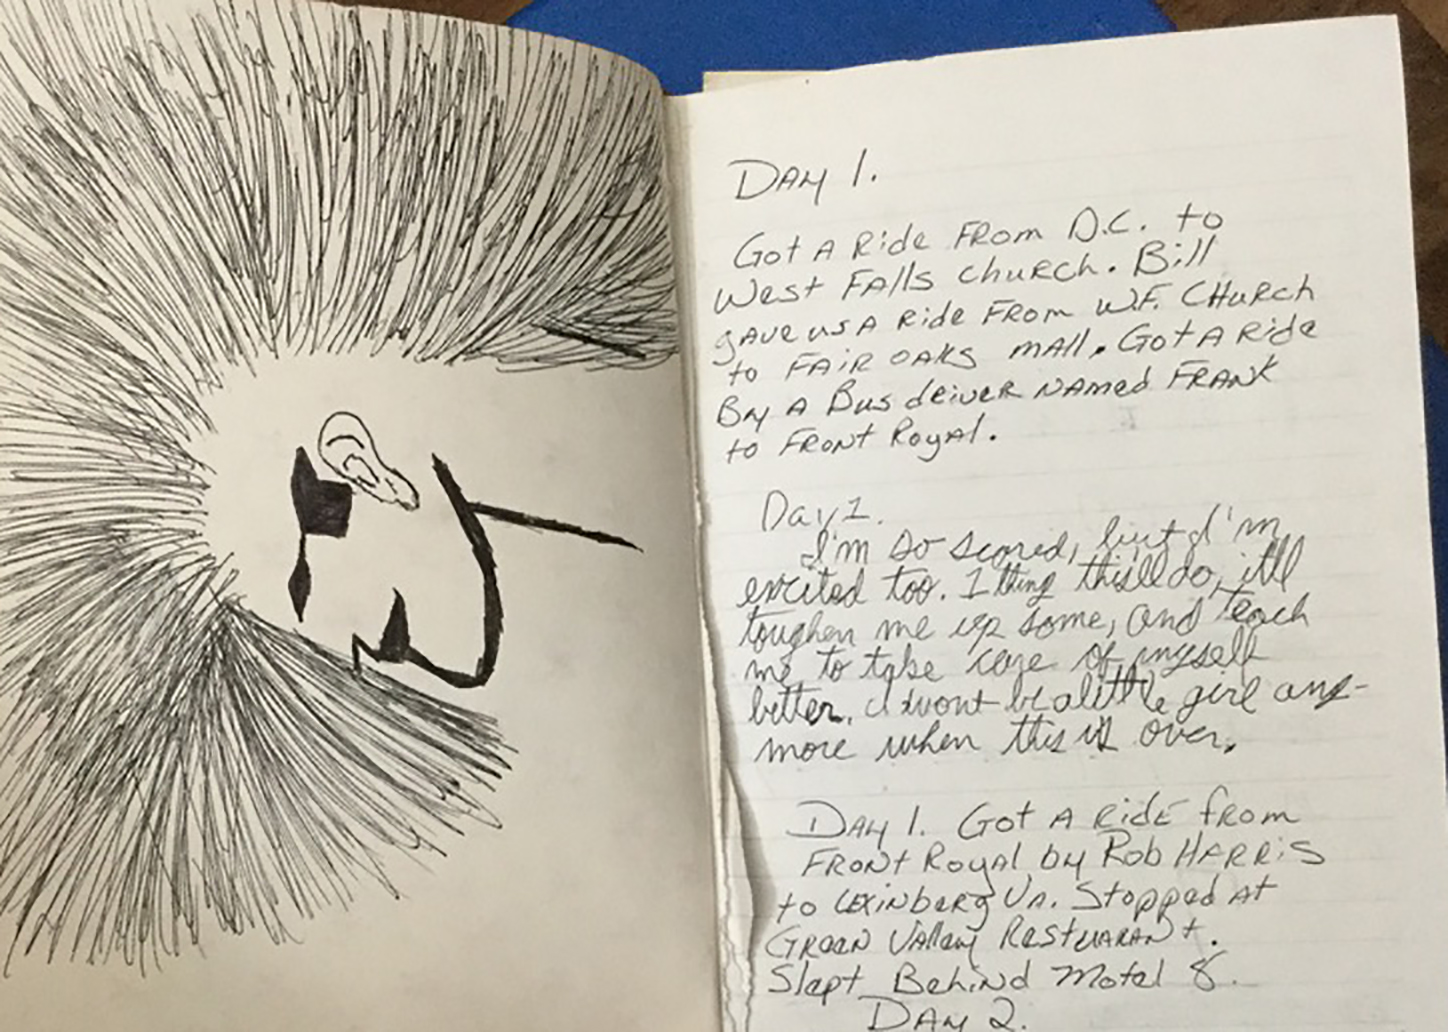 DAY 1.
Got A Ride FROM D.C. to
West FAlls CHURCH. Bill
gAve us A Ride FROM W.F. CHURCH
to FAIR OAKS mAll. Got A Ride
By A Bus driver NAmed FRANK
to FRONT RoyAl.
Day 1.
I'm so scared, but I'm
excited too. I thing this'll do, it'll
toughen me up some, and teach
me to take care of myself
better. I wont be a little girl any-
more when this is over.
DAY 1. Got A RidE from
FRONT RoyAl by Rob HARRiS
to LexinberG VA. Stopped At
GReeN VAlley RestuARANt.
Slept Behind Motel 8.
DAY 2.